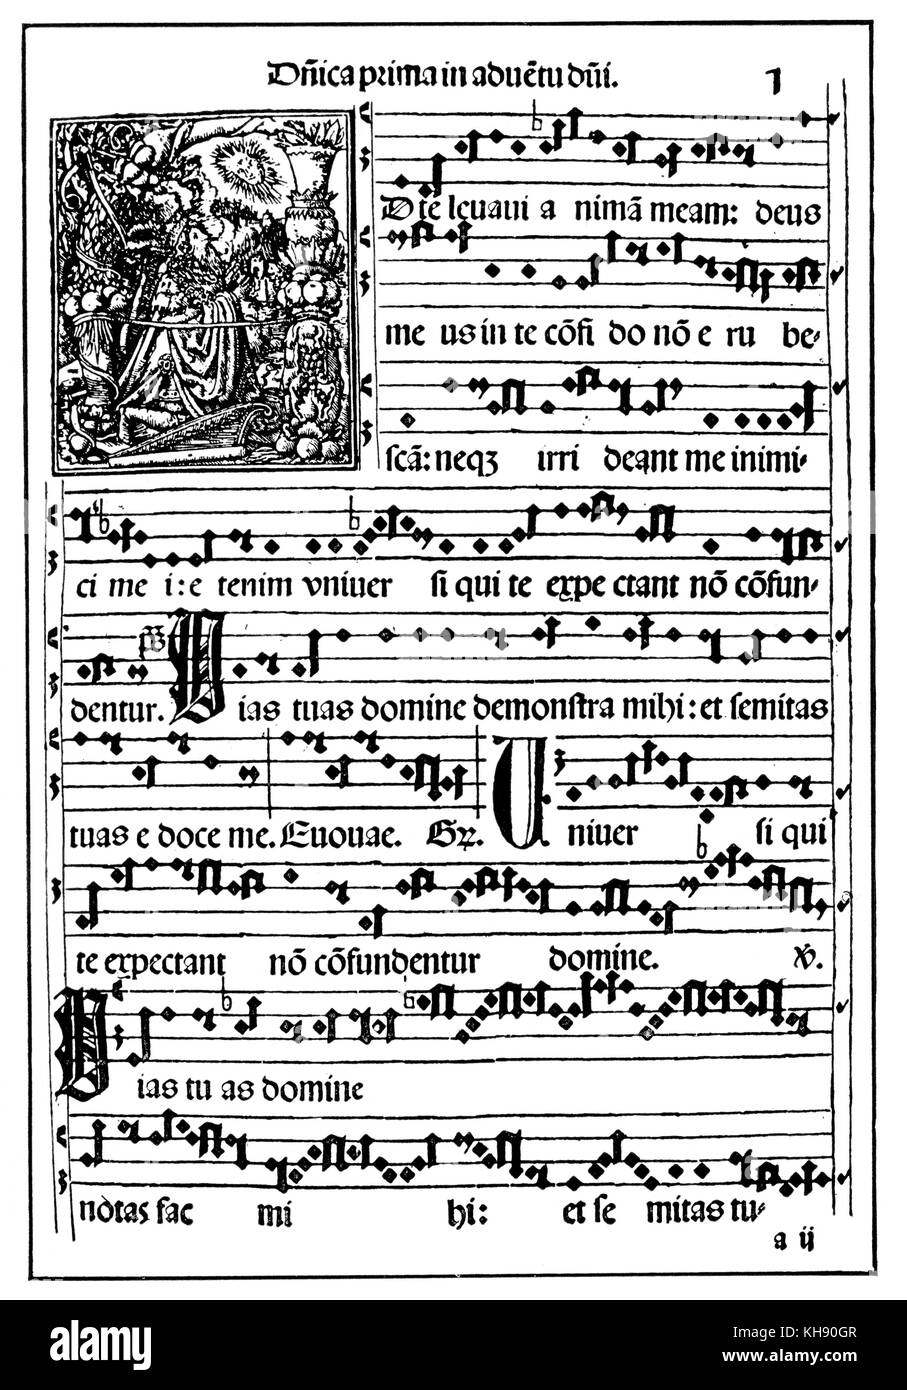 Dñica prima in aduẽtu dñi. 1
D te leuaui a nimã meam: deus
me us in te cõfi do nõ e ru be-
scã: neqꝫ irri deant me inimi-
ci me i: e tenim vniuer si qui te expe ctant nõ cõfun-
dentur. Vias tuas domine demonstra mihi: et semitas
tuas e doce me. Euouae. Gꝛ. Uniuer si qui
te expectant nõ cõfundentur domine. ꝟ.
Vias tu as domine
notas fac mi hi: et se mitas tu-
a ij
alamy
Image ID: KH90GR
www.alamy.com